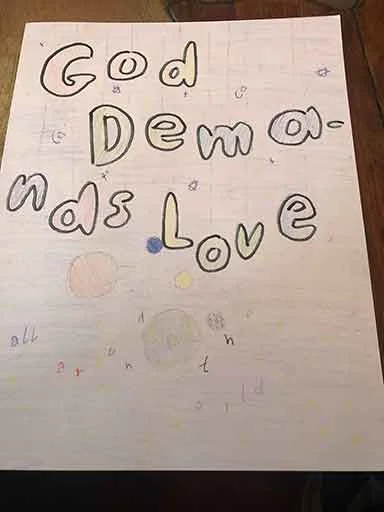 God
Dema-
nds Love
all